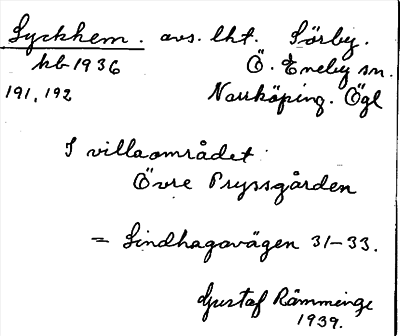 Lyckhem. avs. lht. Sörby.
hb 1936 Ö. Eneby sn.
191, 192 Norrköping. Ögl
I villaområdet
Övre Pryssgården
= Lindhagavägen 31-33.
Gustaf Rämminge
1939.